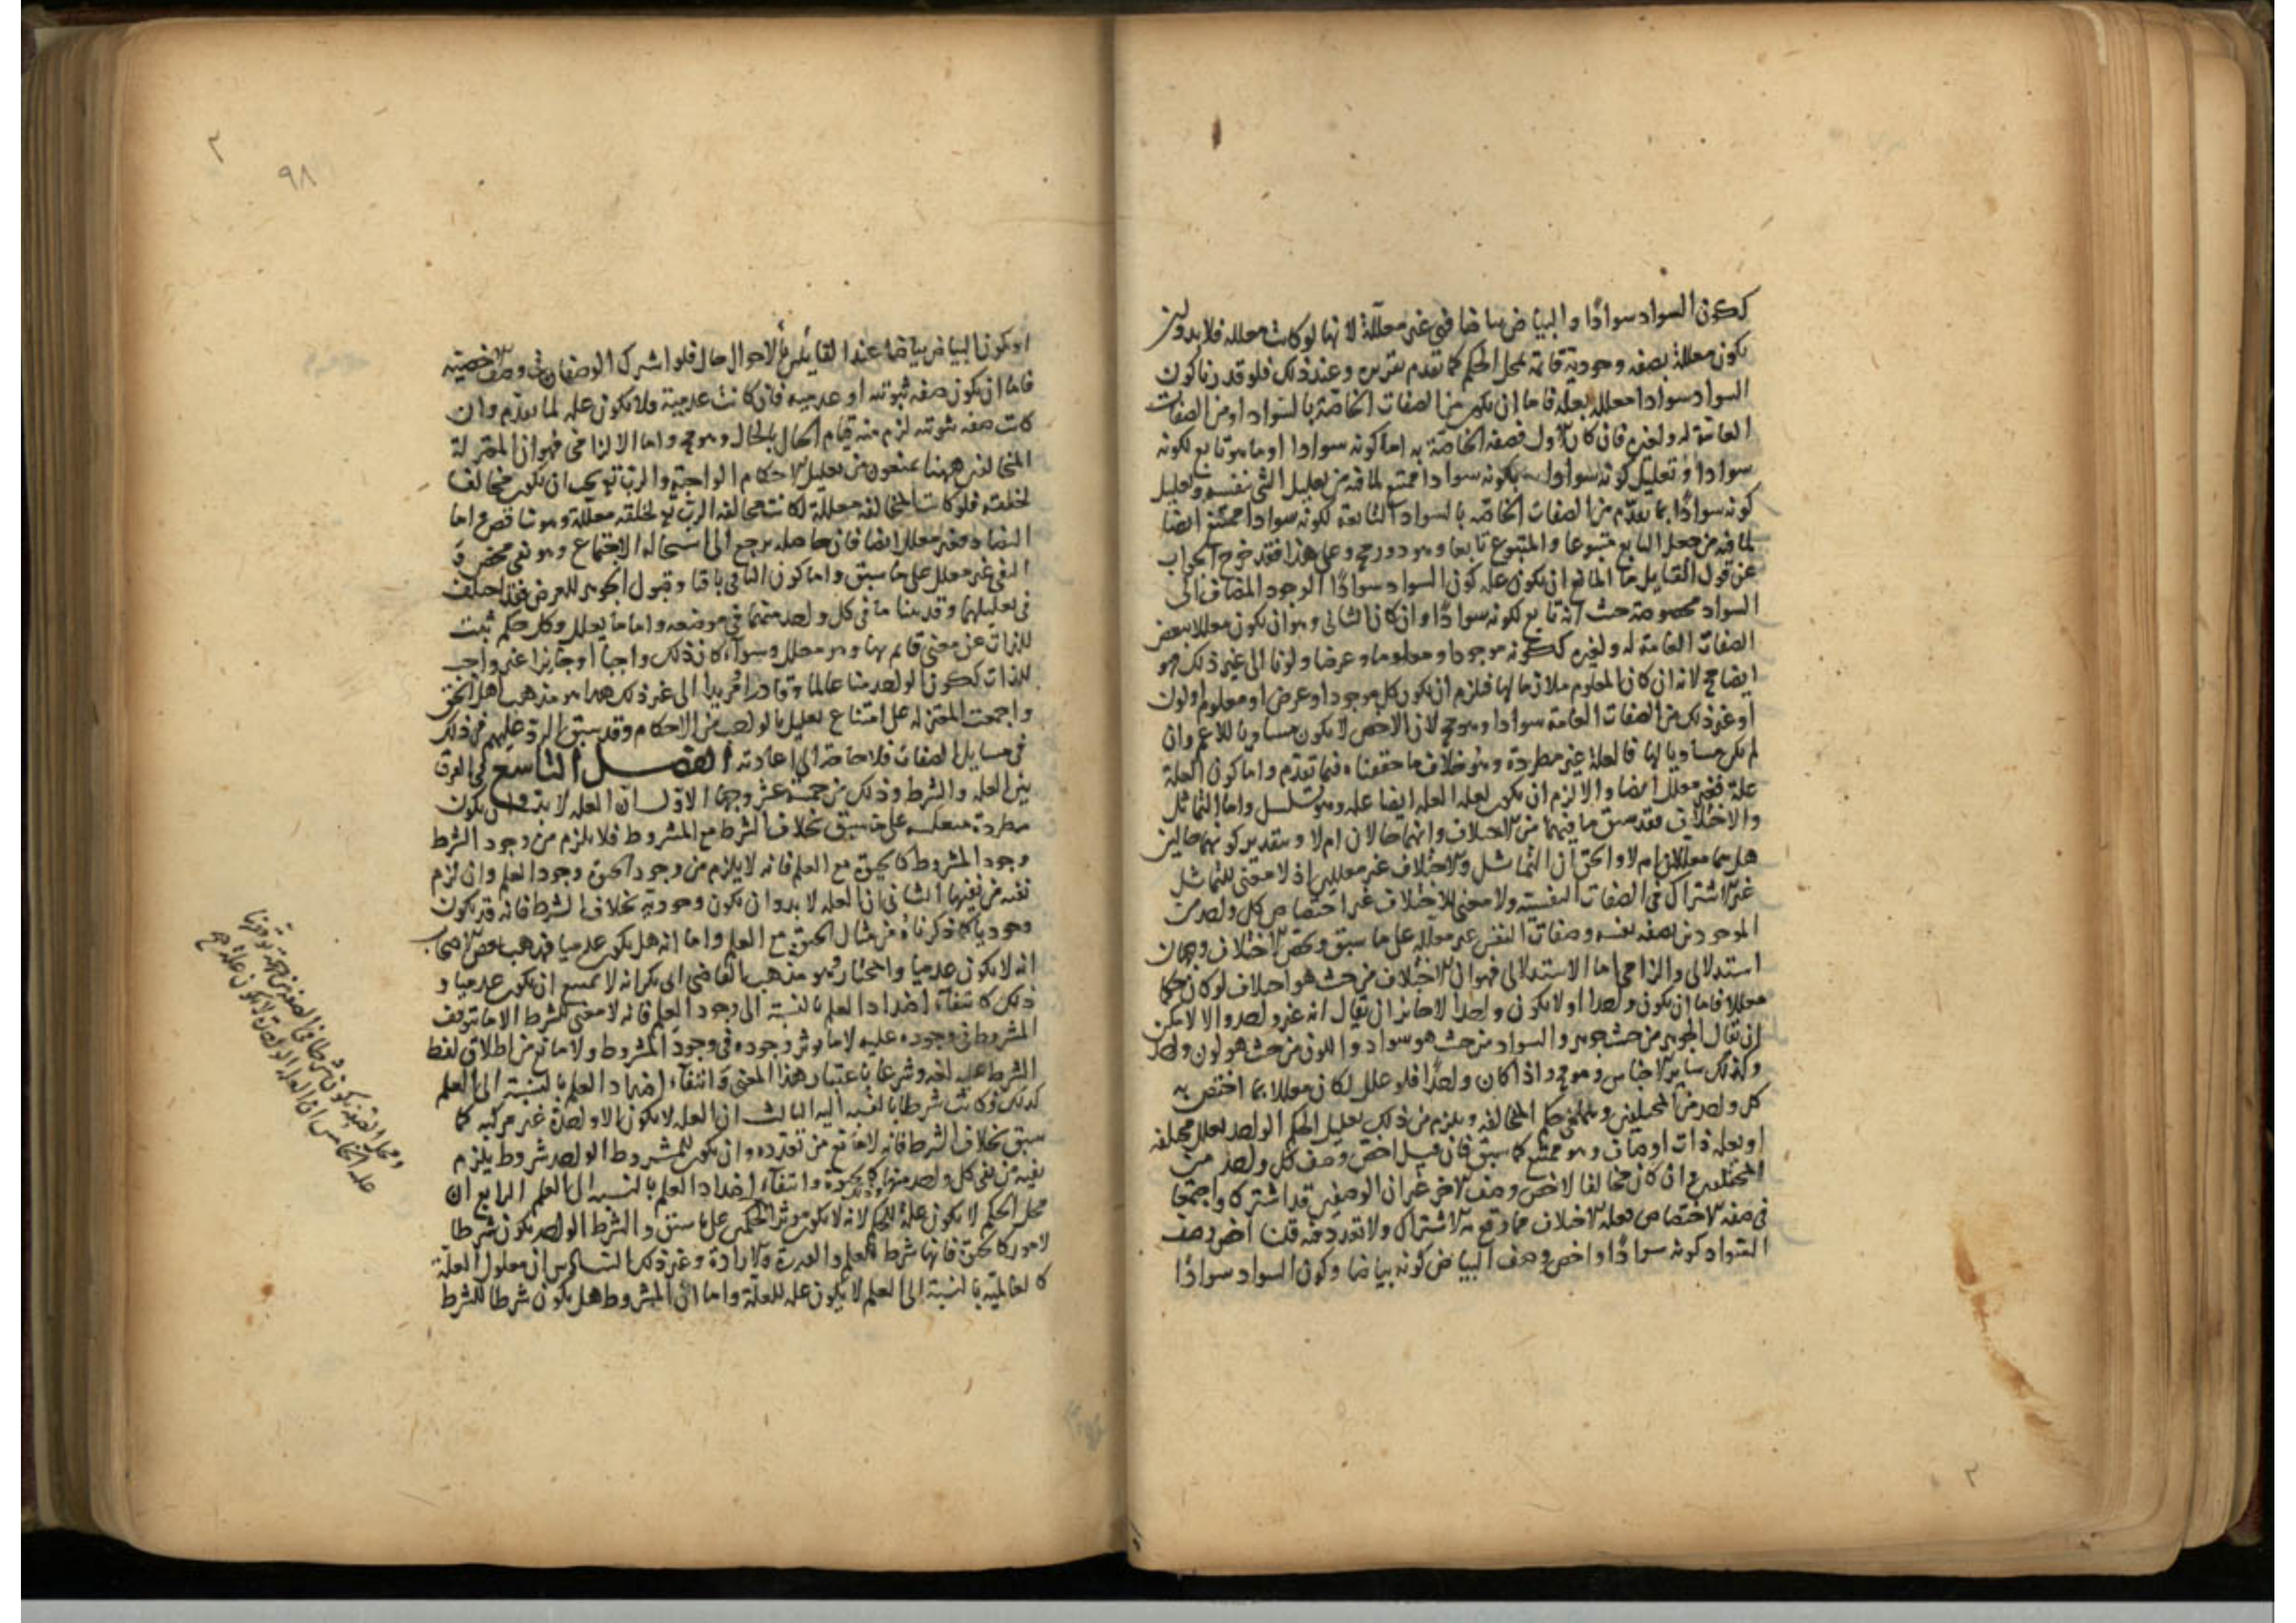 ككون السواد سوادًا والبياض بياضا فهي غير معللة لانها لو كانت معلله فلا بد وان
تكون معللة بصفه وجودية قائمة بمحل الحكم كما تقدم تقريره وعند ذلك فلو قدرنا كون
السواد سوادا معللا بعلة فاما ان يكون من الصفات الخاصة بالسواد او من الصفات
العامة له ولغيره فان كان الاول فصفه الخاصة به اما كونه سوادا او ما هو تابع لكونه
سوادا وتعليل كونه سوادا بكونه سوادا ممتنع لما فيه من تعليل الشي بنفسه وتعليل
كونه سوادًا بما تقدم من الصفات الخاصه بالسواد التابعة لكونه سوادا ممتنع ايضا
لما فيه من جعل التابع متبوعا والمتبوع تابعا وهو دور مح وعلى هذا فقد خرج الجواب
عن قول القايل ما المانع ان يكون علة كون السواد سوادًا الوجود المضاف الى
السواد من حيث انه تابع لكونه سوادًا وان كان الثاني وهو ان يكون معللا ببعض
الصفات العامة له ولغيره ككونه موجودا ومعلوما وعرضا ولونا الى غير ذلك فهو
ايضا مح لانه ان كان المعلوم ملازما لها فيلزم ان يكون كل موجود او عرض او معلوم او لون
او غير ذلك من الصفات العامة سوادا وهو مح لان الاخص لا يكون مساويا للاعم وان
لم يكن مساويا لها فالعلة غير مطردة وهو خلاف ما حققناه فيما تقدم واما كون العلة
علة فغير معلل ايضا والا لزم ان يكون لعلة العلة ايضا علة وهو تسلسل واما التماثل
والاختلاف فقد سبق ما فيهما من الاختلاف وانهما حالان ام لا وبتقدير كونهما حالين
هل هما معللان ام لا والحق ان التماثل والاختلاف غير معللين اذ لا معنى للتماثل
غير الاشتراك في الصفات النفسية ولا معنى للاختلاف غير اختصاص كل واحد من
الموجودين بصفه نفسه وصفات النفس غير معللة على ما سبق ويخص الاختلاف وجهان
استدلالي والزامي اما الاستدلالي فهو ان الاختلاف من حيث هو اختلاف لو كان حكما
معللا فاما ان يكون واحدا او لا يكون واحدا لا جائز ان يقال انه غير واحد والا لامكن
ان يقال الجوهر من حيث جوهر والسواد من حيث هو سواد واللون من حيث هو لون واحد
وكذلك ساير الاجناس وهو مح واذا كان واحدًا فلو علل لكان معللا بما اختص به
كل واحد من المختلفين حكم المخالفه ويلزم من ذلك تعليل الحكم الواحد بعلل مختلفه
او بعلة ذات اوصاف وهو ممتنع كما سبق فان قيل اخص وصف كل واحد من
المختلفين وان كان مخالفا لاخص وصف الاخر غير ان الوصفين قد اشتركا واجتمعا
في صفه الاختصاص بعلة الاختلاف ما وقع به الاشتراك ولا تعدد فيه قلنا اخص وصف
السواد كونه سوادًا واخص وصف البياض كونه بياضا وكون السواد سوادًا
٢
٢
٩٨
او كون البياض بياضا عند القايلين بالاحوال حال فلو اشترك الوصفان في وصف الاخصية
فاما ان يكون صفه ثبوتيه او عدميه فان كانت عدمية فلا يكون علة لما تقدم وان
كانت صفه ثبوتيه لزم منه قيام الحال بالحال وهو مح واما الالزامي فهو ان المعتزلة
المخالفين ههنا يمنعون من تعليل الاحكام الواجبة والرب تع يجب ان يكون مخالفا
لخلقه فلو كانت المخالفه معللة لكانت مخالفه الرب تع لخلقه معللة وهو تناقض واما
التضاد فغير معلل ايضا فان حاصله يرجع الى استحالة الاجتماع وهو نفي محض و
النفي غير معلل على ما سبق واما كون الباقي باقيا وقبول الجوهر للعرض فقد اختلف
في تعليلهما وقد بينا ما في كل واحد منهما في موضعه واما ما يعلل وكل حكم ثبت
للذات عن معنى قايم بها وهو معلل وسواء كان ذلك واجبا او جايزا غير واجب
للذات ككون الواحد منا عالما وقادرا ومريدا الى غير ذلك هذا هو مذهب اهل الحق
واجمعت المعتزله على امتناع تعليل الواجب من الاحكام وقد سبق الرد عليهم في ذلك
في مسايل الصفات فلا حاجة الى اعادته الفصل التاسع في الفرق
بين العله والشرط وذلك من خمسة عشر وجها الاول ان العله لا بد وان يكون
مطردة منعكسه على ما سبق بخلاف الشرط مع المشروط فلا يلزم من وجود الشرط
وجود المشروط كالحيوة مع العلم فانه لا يلزم من وجود الحيوة وجود العلم وان لزم
نفيه من نفيها الثاني ان العله لا بد وان يكون وجودية بخلاف الشرط فانه قد يكون
وجوديا كما ذكرناه من مثال الحيوة مع العلم واما انه هل يكون عدميا فذهب بعض الاصحاب
انه لا يكون عدميا والمختار وهو مذهب القاضي ابى بكر انه لا يمتنع ان يكون عدميا و
ذلك كانتفاء اضداد العلم بالنسبة الى وجود العلم فانه لا معنى للشرط الا ما يتوقف
المشروط في وجوده عليه لا ما يوثر وجوده في وجود المشروط ولا مانع من اطلاق لفظ
الشرط عليه لغه وشرعا باعتبار هذا المعنى وانتفاء اضداد العلم بالنسبة الى العلم
كذلك فكانت شرطا بالنسبه اليه الثالث ان العله لا يكون الا واحدة غير مركبه كما
سبق بخلاف الشرط فانه لا مانع من تعدده وان يكون للمشروط الواحد شروط يلزم
نفيه من نفي كل واحد منها كالحيوة وانتفاء اضداد العلم بالنسبه الى العلم الرابع ان
محل الحكم لا يكون علة للحكم لانه لا يكون موثرا في الحكم على ما سبق والشرط الواحد يكون شرطا
لامور كالحيوة فانها شرط للعلم والقدرة والارادة وغير ذلك السادس ان معلول العلة
كالعالمية بالنسبة الى العلم لا يكون علة للعلة واما ان المشروط هل يكون شرطا للشرط
ومحل الصفه يكون شرطا في الصفه من جهة توقفها
عليه الخامس ان العله الواحدة لا يكون علة